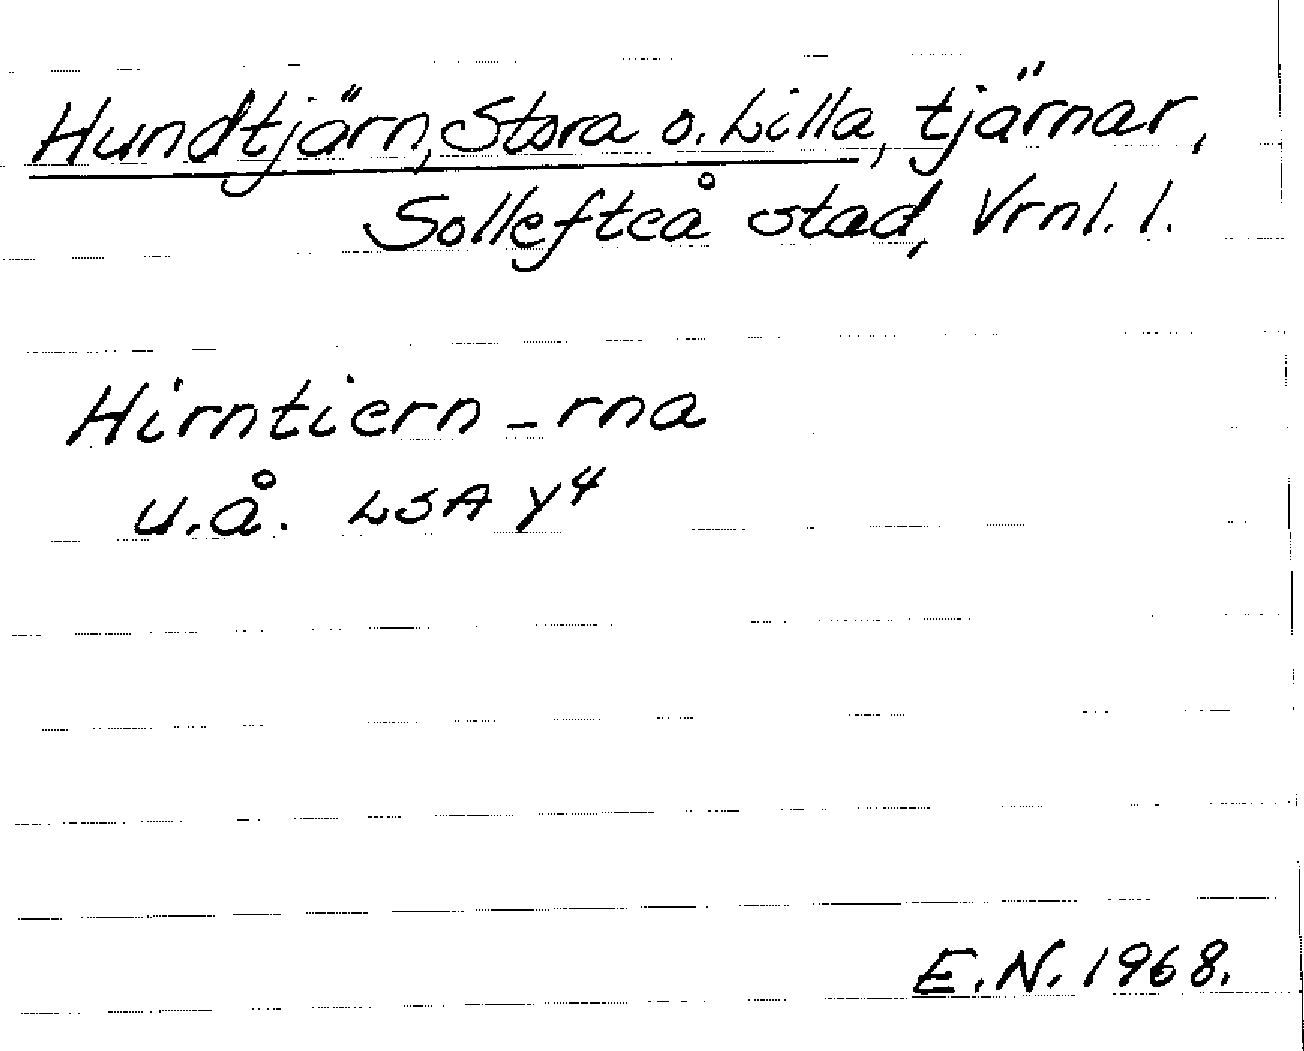 Hundtjärn, Stora o. Lilla, tjärnar,
Sollefteå stad, Vrnl. l.
Hirntiern -rna
u.å. LSA Y4
E.N. 1968.